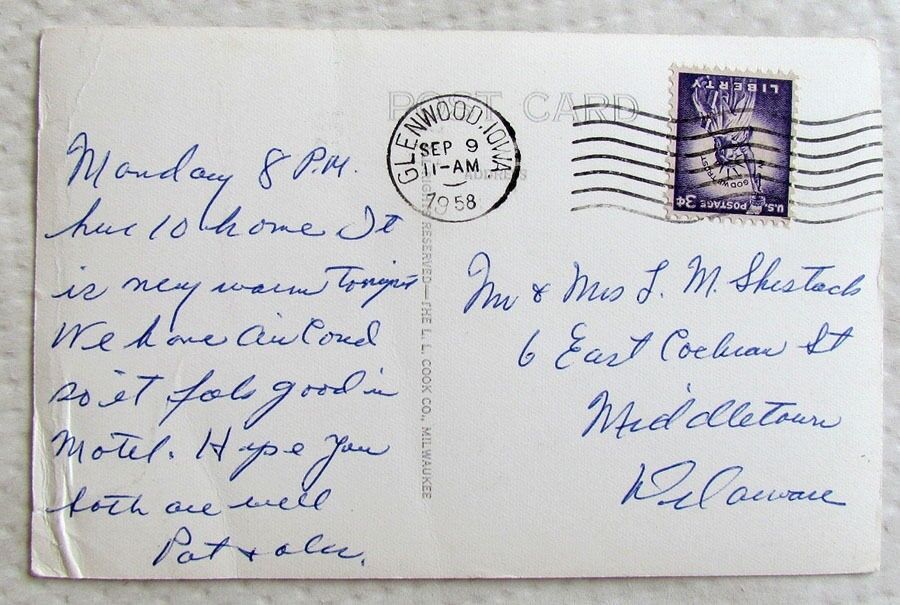 POST CARD
GLENWOOD, IOWA
SEP 9
11-AM
1958
ADDRESS
LIBERTY
IN GOD WE TRUST
U.S. POSTAGE 3¢
Monday 8 P.M.
here 10 home It
is very warm Tonight
We have Air Cond
so it feels good in
Motel. Hope You
both are well
Pat +
RIGHTS RESERVED—THE L. L. COOK CO., MILWAUKEE
Mr & Mrs L. M. Shestack
6 East Cochran St
Middletown
Delaware